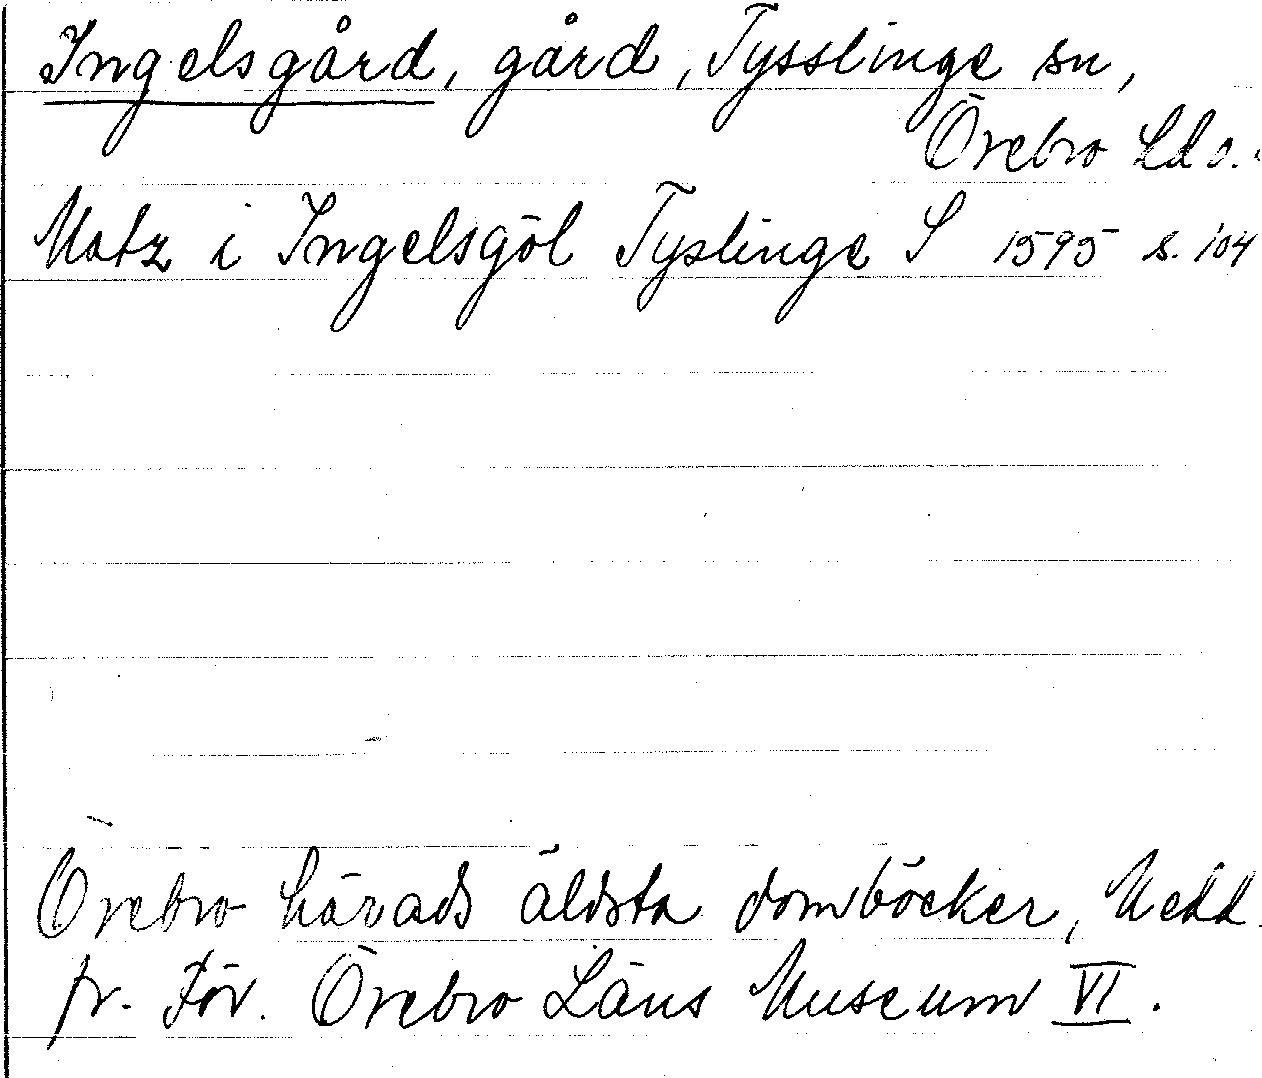 Ingelsgård, gård, Tysslinge sn,
Örebro Lds.
Matz i Ingelsgöl Tyslinge S 1595 s. 104
Örebro härads äldsta domböcker, Medd.
fr. För. Örebro Läns Museum VI.